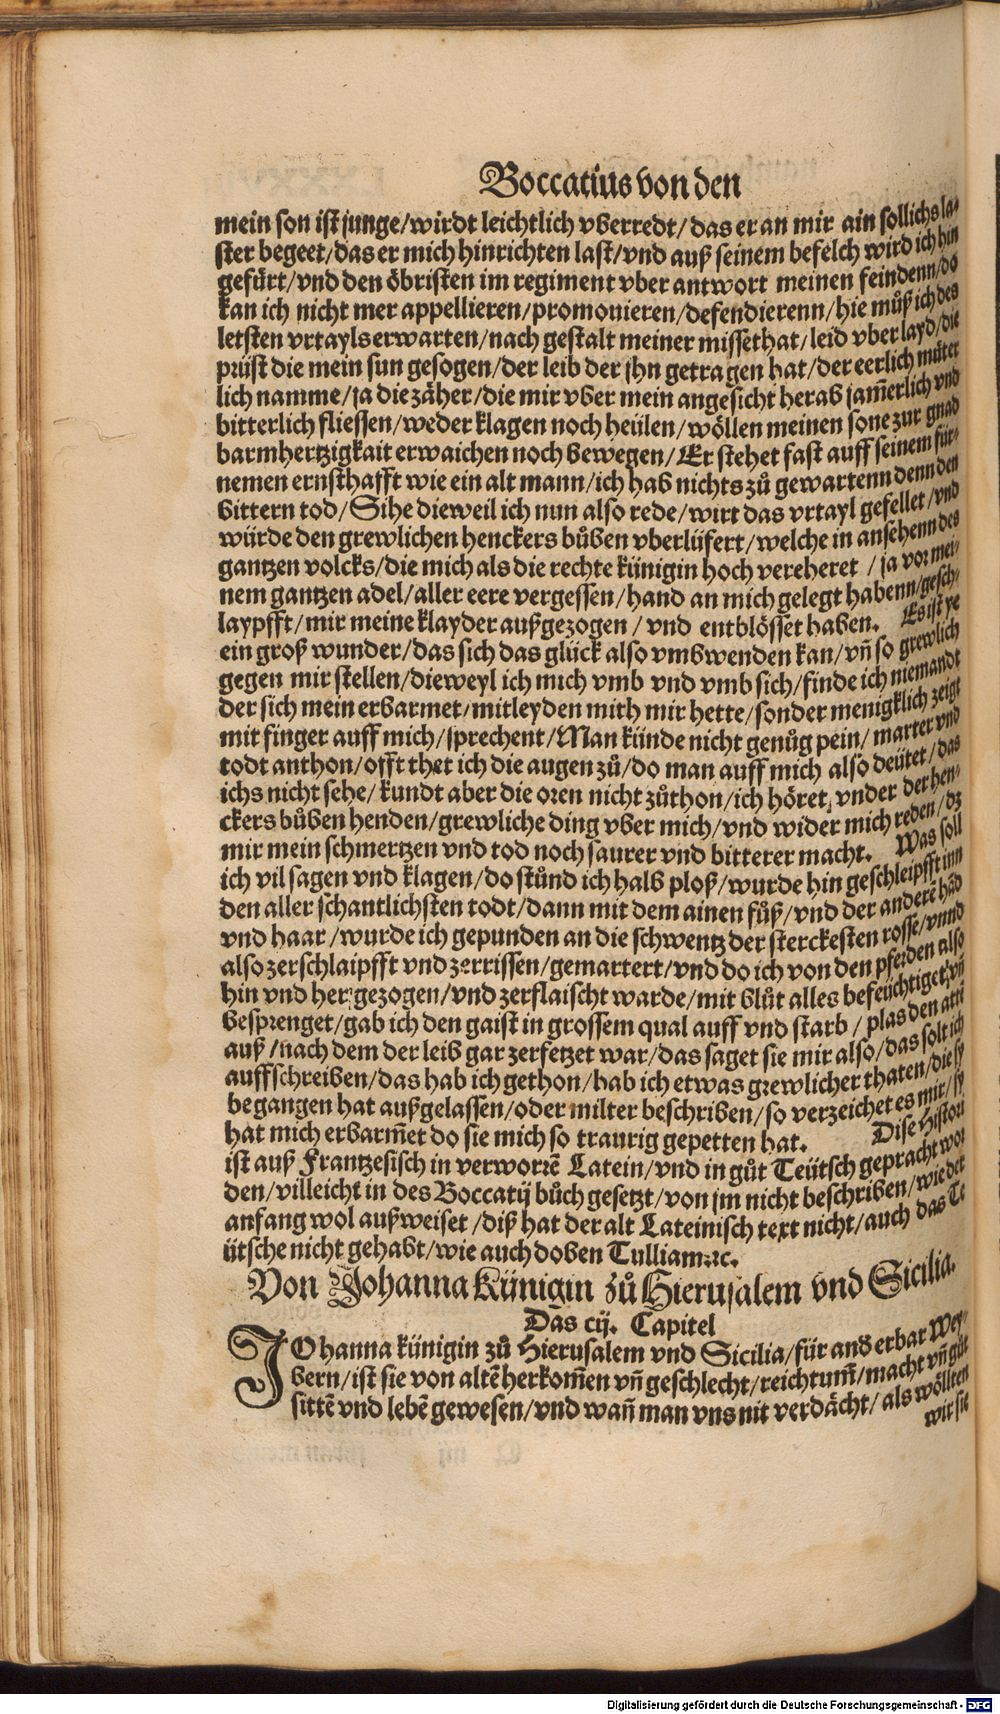 Boccatius von den
mein son ist junge/wirdt leichtlich vberredt/das er an mir ain sollichs la-
ster begeet/das er mich hinrichten last/vnd auß seinem befelch wird ich hin
gefürt/vnd den öbristen im regiment vber antwort meinen feindenn/do
kan ich nicht mer appellieren/promouieren/defendierenn/hie můß ich des
letsten vrtayls erwarten/nach gestalt meiner missethat/leid vber layd/die
prüst die mein sun gesogen/der leib der jhn getragen hat/der eerlich můter
lich namme/ja die zäher/die mir vber mein angesicht herab jam̃erlich vnd
bitterlich fliessen/weder klagen noch heülen/wöllen meinen sone zur gnad
barmhertzigkait erwaichen noch bewegen/Er stehet fast auff seinem für-
nemen ernsthafft wie ein alt mann/ich hab nichts zů gewartenn denn den
bittern tod/Sihe dieweil ich nun also rede/wirt das vrtayl gefellet/vnd
würde den grewlichen henckers bůben vberlüfert/welche in ansehenn des
gantzen volcks/die mich als die rechte künigin hoch vereheret /ja vor mei-
nem gantzen adel/aller eere vergessen/hand an mich gelegt habenn/gesch-
laypfft/mir meine klayder außgezogen/ vnd entblösset haben. Es ist ye
ein groß wunder/das sich das glück also vmbwenden kan/vñ so grewlich
gegen mir stellen/dieweyl ich mich vmb vnd vmb sich/finde ich niemandt
der sich mein erbarmet/mitleyden mith mir hette/sonder menigklich zeigt
mit finger auff mich/sprechent/Man künde nicht genůg pein/marter vnd
todt anthon/offt thet ich die augen zů/do man auff mich also deütet/das
ichs nicht sehe/kundt aber die oren nicht zůthon/ich höret vnder der hen-
ckers bůben henden/grewliche ding vber mich/vnd wider mich reden/dz
mir mein schmertzen vnd tod noch saurer vnd bitterer macht. Was soll
ich vil sagen vnd klagen/do stůnd ich halb ploß/wurde hin geschleipfft inn
den aller schantlichsten todt/dann mit dem ainen fůß/vnd der anderẽ hãd
vnd haar/wurde ich gepunden an die schwentz der sterckesten rosse/vnnd
also zerschlaipfft vnd zerrissen/gemartert/vnd do ich von den pferden also
hin vnd her gezogen/vnd zerflaischt warde/mit blůt alles befeüchtiget/vñ
besprenget/gab ich den gaist in grossem qual auff vnd starb/plas den atẽ
auß/nach dem der leib gar zerfetzet war/das saget sie mir also/das solt ich
auffschreiben/das hab ich gethon/hab ich etwas grewlicher thaten/die sy
begangen hat außgelassen/oder milter beschriben/so verzeichet es mir/sy
hat mich erbarm̃et do sie mich so traurig gepetten hat. Dise Histori
ist auß Frantzesisch in verworrẽ Latein/vnd in gůt Teütsch gepracht wor
den/villeicht in des Boccatij bůch gesetzt/von jm nicht beschriben/wie der
anfang wol außweiset/diß hat der alt Lateinisch text nicht/auch das Te
ütsche nicht gehabt/wie auch doben Tulliam. ꝛc.
Von Johanna Künigin zů Hierusalem vnd Sicilia.
Das cij. Capitel
JOhanna künigin zů Hierusalem vnd Sicilia/für and erbar Wey-
bern/ist sie von altẽ herkom̃en vñ geschlecht/reichtum̃/macht vñ gůt
sittẽ vnd lebẽ gewesen/vnd wañ man vns nit verdächt/als wöllten
wir sie
Digitalisierung gefördert durch die Deutsche Forschungsgemeinschaft - DFG